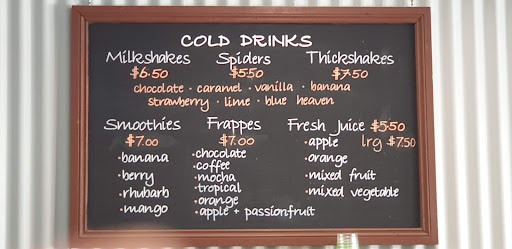 COLD DRINKS
Milkshakes Spiders Thickshakes
$6.50 $5.50 $7.50
chocolate · caramel · vanilla · banana
strawberry · lime · blue heaven
Smoothies
$7.00
•banana
•berry
•rhubarb
•mango
Frappes
$7.00
•chocolate
•coffee
•mocha
•tropical
•orange
•apple + passionfruit
Fresh Juice $5.50
•apple lrg $7.50
•orange
•mixed fruit
•mixed vegetable